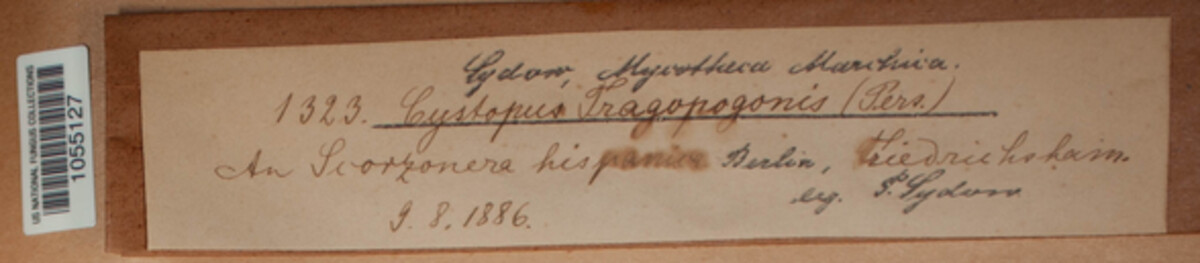 US NATIONAL FUNGUS COLLECTIONS
1055127
Sydow, Mycotheca Marchica.
1323. Cystopus Tragopogonis (Pers.)
An Scorzonera hispanica Berlin, Friedrichshain.
leg. P. Sydow
9. 8. 1886.